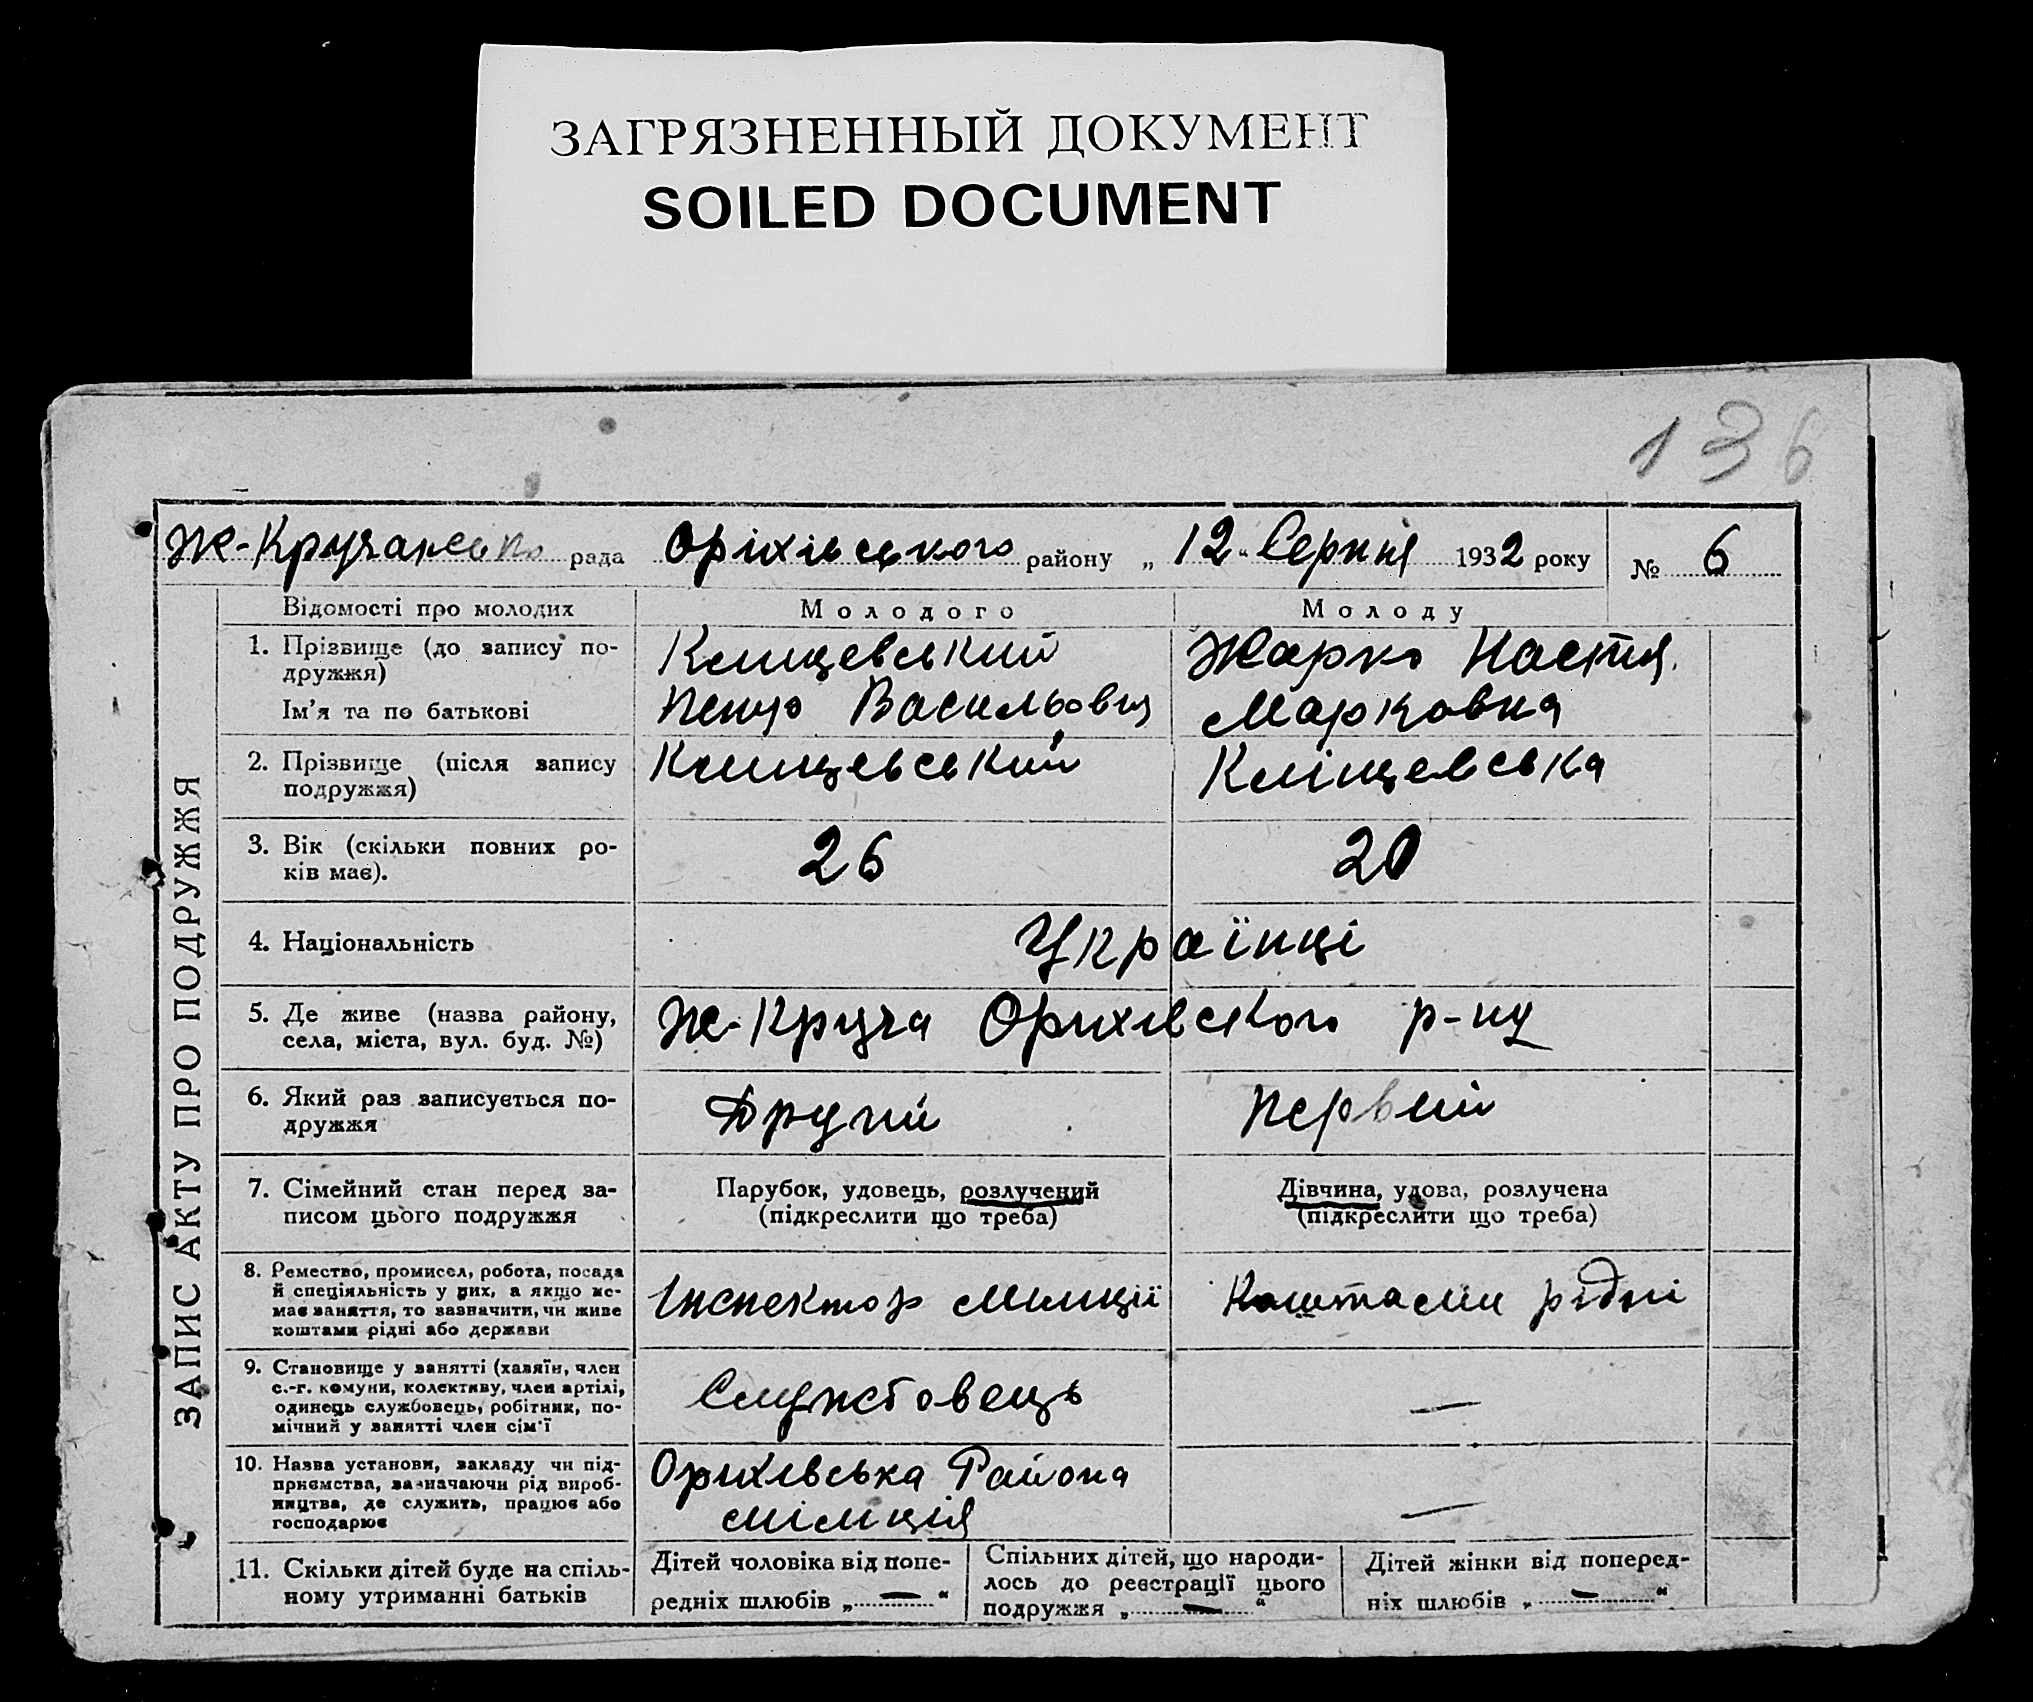 ЗАГРЯЗНЕННЫЙ ДОКУМЕНТ
SOILED DOCUMENT
136
Ж-Кручансько рада Оріхівського району „ 12 " Серпня 1932 року № 6
ЗАПИС АКТУ ПРО ПОДРУЖЖЯ
Відомості про молодих Молодого Молоду
1. Прізвище (до запису по-
дружжя)
Ім'я та по батькові
Клищевський
Петро Васильович
Жарко Настя
Марковна
2. Прізвище (після запису
подружжя)
Клищевський
Кліщевська
3. Вік (скільки повних ро-
ків має).
26
20
4. Національність
Українці
5. Де живе (назва району,
села, міста, вул. буд. №)
Ж-Круча Орихівского р-ну
6. Який раз записується по-
дружжя
Другий
Первий
7. Сімейний стан перед за-
писом цього подружжя
Парубок, удовець, розлучений
(підкреслити що треба)
Дівчина, удова, розлучена
(підкреслити що треба)
8. Ремество, промисел, робота, посада
й спеціяльність у них, а якщо не-
має заняття, то зазначити, чи живе
коштами рідні або держави
Інспектор Милиції
Коштами рідні
9. Становище у занятті (хазяїн, член
с.-г. комуни, колективу, член артілі,
одинець службовець, робітник, по-
мічний у занятті член сім'ї
Службовець
—
10. Назва установи, закладу чи під-
приємства, зазначаючи рід вироб-
ництва, де служить, працює або
господарює
Орихівська Района
міліція
—
11. Скільки дітей буде на спіль-
ному утриманні батьків
Дітей чоловіка від попе-
редніх шлюбів „ — "
Спільних дітей, що народи-
лось до реєстрації цього
подружжя „ — "
Дітей жінки від поперед-
ніх шлюбів „ — "